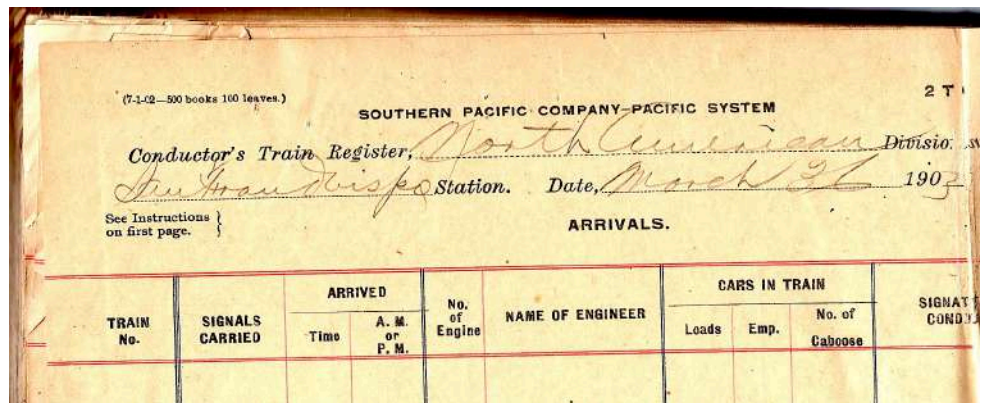 (7-1-02—500 books 100 leaves.)
2 T
SOUTHERN PACIFIC COMPANY-PACIFIC SYSTEM
Conductor's Train Register, North American Divisio
San Station. Date, March 26 1903
See Instructions }
on first page. }
ARRIVALS.
TRAIN No.
SIGNALS CARRIED
ARRIVED
Time
A. M. or P. M.
No. of Engine
NAME OF ENGINEER
CARS IN TRAIN
Loads
Emp.
No. of Caboose
SIGNAT
COND